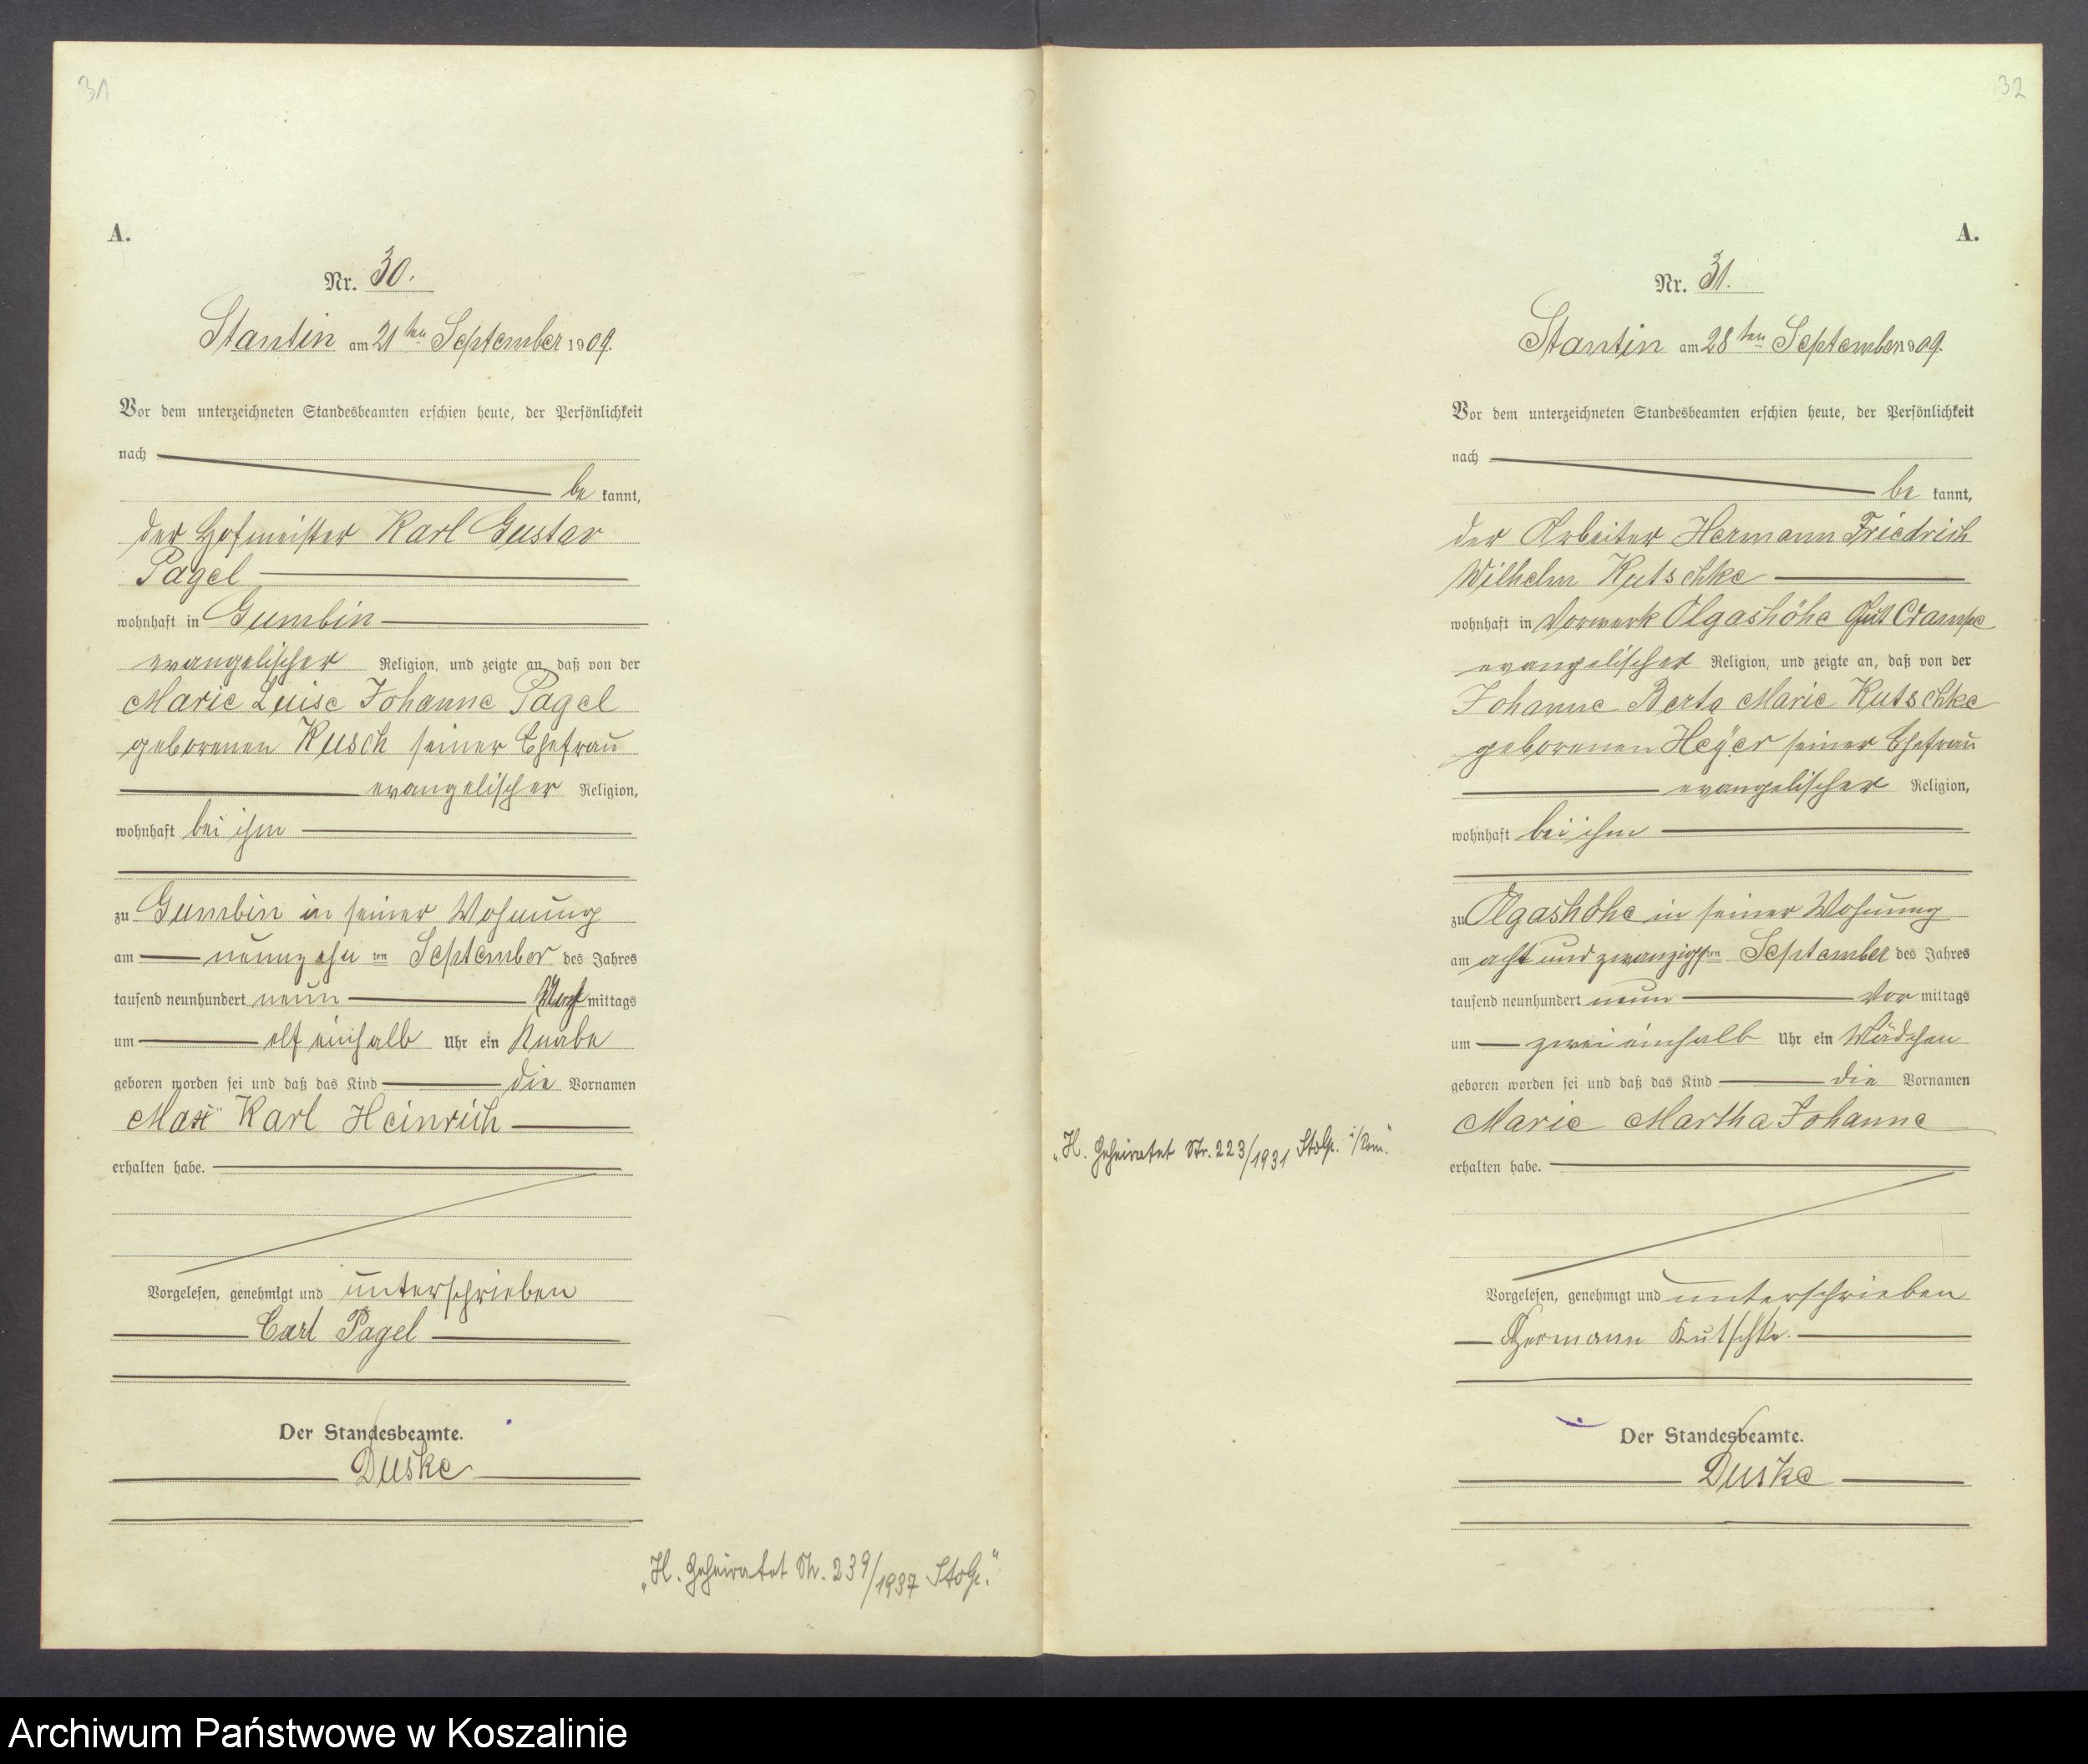 31
A.
Nr. 30.
Stantin am 21ten September 1909.
Vor dem unterzeichneten Standesbeamten erschien heute, der Persönlichkeit
nach
be kannt,
der Hofmeister Karl Gustav
Pagel
wohnhaft in Gumbin
evangelischer Religion, und zeigte an, daß von der
Marie Luise Johanne Pagel
geborenen Kusch seiner Ehefrau
evangelischer Religion,
wohnhaft bei ihm
zu Gumbin in seiner Wohnung
am neunzehnten September des Jahres
tausend neunhundert neun mittags
um elf einhalb Uhr ein Knabe
geboren worden sei und daß das Kind die Vornamen
Max Karl Heinrich
erhalten habe.
Vorgelesen, genehmigt und unterschrieben
Carl Pagel
Der Standesbeamte.
Duske
„H. Geheiratet Nr. 239/1937 Stolp."
32
A.
Nr. 31.
Stantin am 28ten September 1909.
Vor dem unterzeichneten Standesbeamten erschien heute, der Persönlichkeit
nach
be kannt,
der Arbeiter Hermann Friedrich
Wilhelm Kutschke
wohnhaft in Vorwerk Olgashöhe Gut Crampe
evangelischer Religion, und zeigte an, daß von der
Johanne Berta Marie Kutschke
geborenen Heyer seiner Ehefrau
evangelischer Religion,
wohnhaft bei ihm
zu Olgashöhe in seiner Wohnung
am acht und zwanzigsten September des Jahres
tausend neunhundert neun Vor mittags
um zwei einhalb Uhr ein Mädchen
geboren worden sei und daß das Kind die Vornamen
Marie Martha Johanne
„H. Geheiratet Nr. 223/1931 Stolp. i/Pom."
erhalten habe.
Vorgelesen, genehmigt und unterschrieben
Hermann Kutschke.
Der Standesbeamte.
Duske
Archiwum Państwowe w Koszalinie